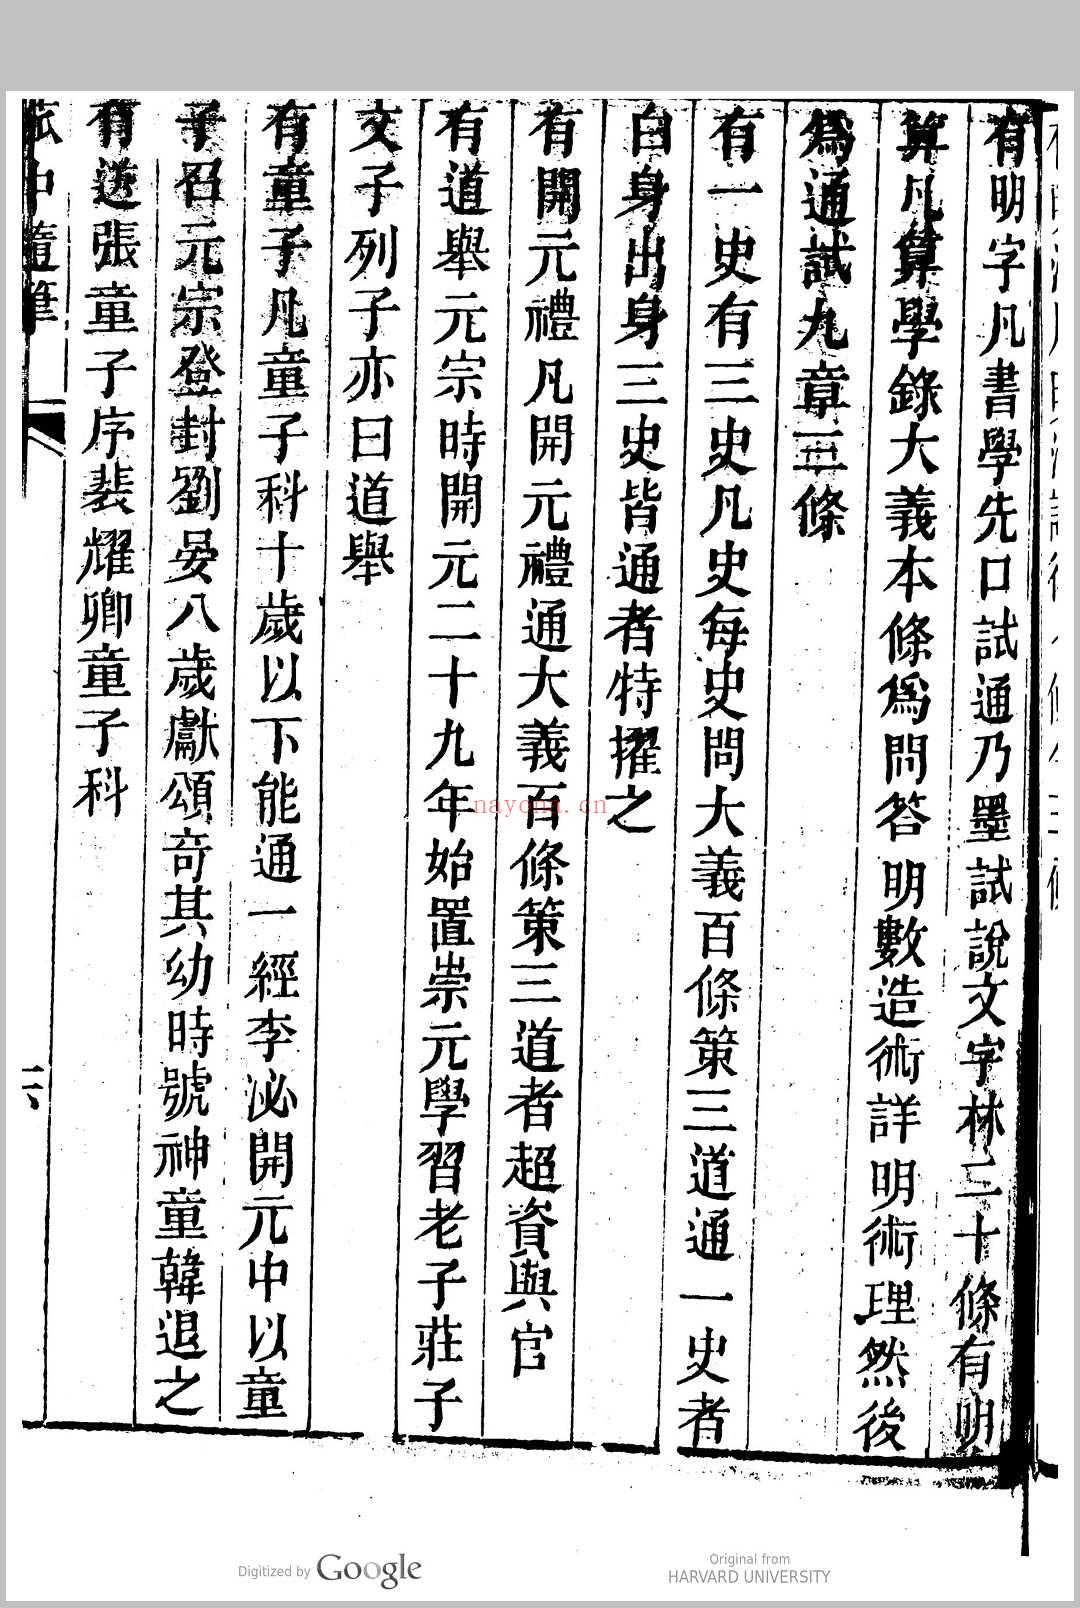 有明字凡書學先口試通乃墨試說文字林二十條有明
算凡算學錄大義本條爲問答明數造術詳明術理然後
爲通試九章三條
有一史有三史凡史每史問大義百條策三道通一史者
白身出身三史皆通者特擢之
有開元禮凡開元禮通大義百條策三道者超資與官
有道舉元宗時開元二十九年始置崇元學習老子莊子
文子列子亦曰道舉
有童子凡童子科十歲以下能通一經李泌開元中以童
子召元宗登封劉晏八歲獻頌奇其幼時號神童韓退之
有送張童子序裴耀卿童子科
中隨筆
六
nayona.cn
Digitized by Google
Original from
HARVARD UNIVERSITY